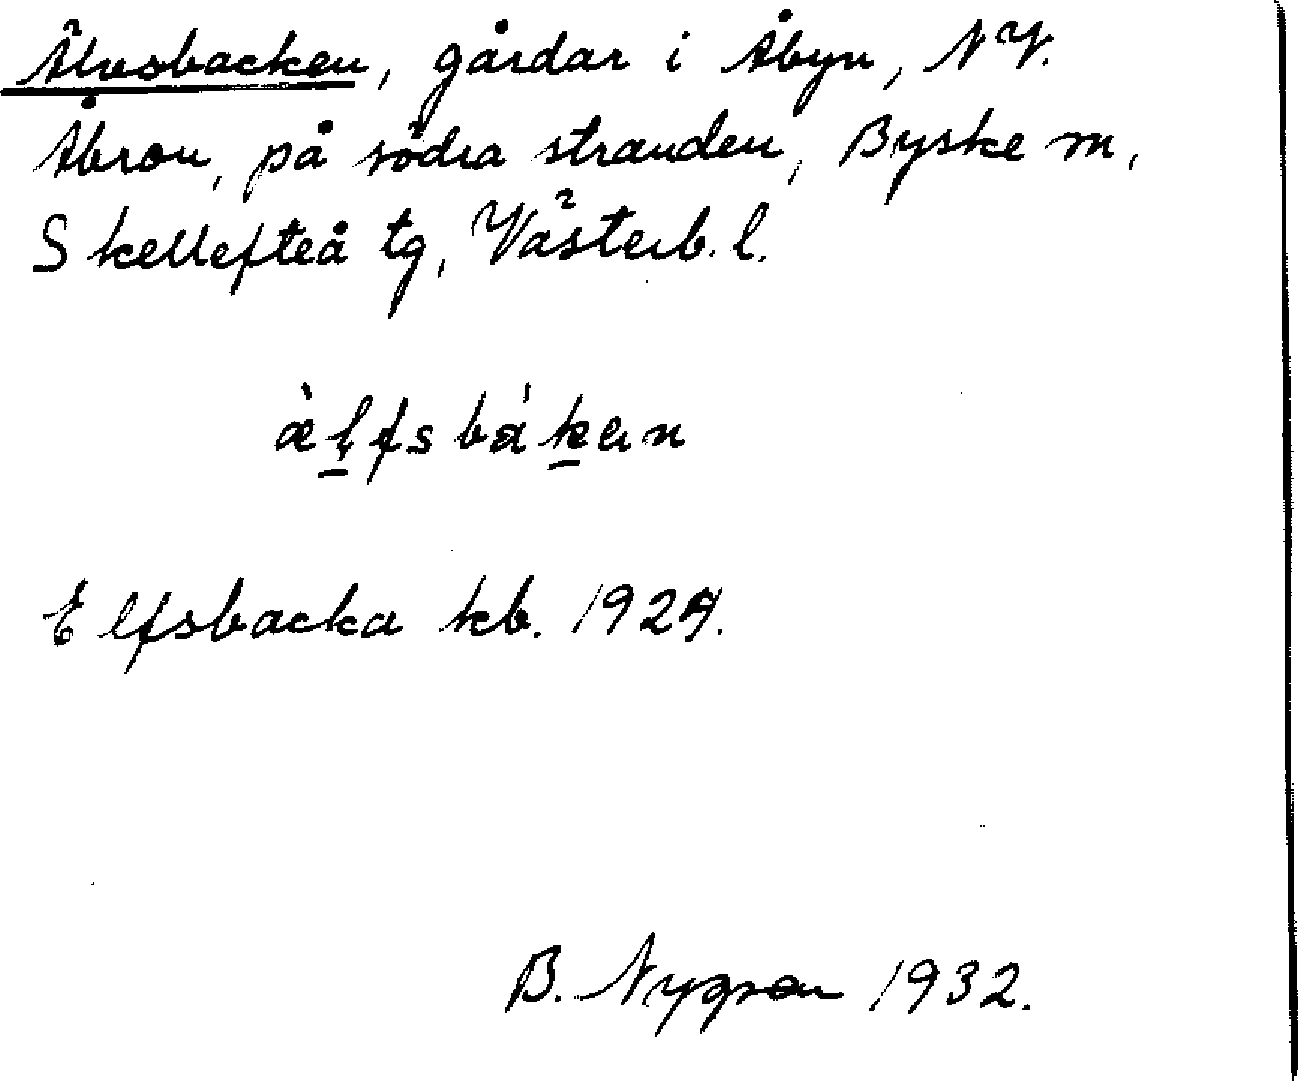 Älvsbacken, gårdar i Åbyn, NV.
Åbron, på södra stranden, Byske sn,
Skellefteå tg, Västerb. l.
æ̀l̠fsbák̠en
Elfsbacka kb. 1929.
B. Nygren 1932.